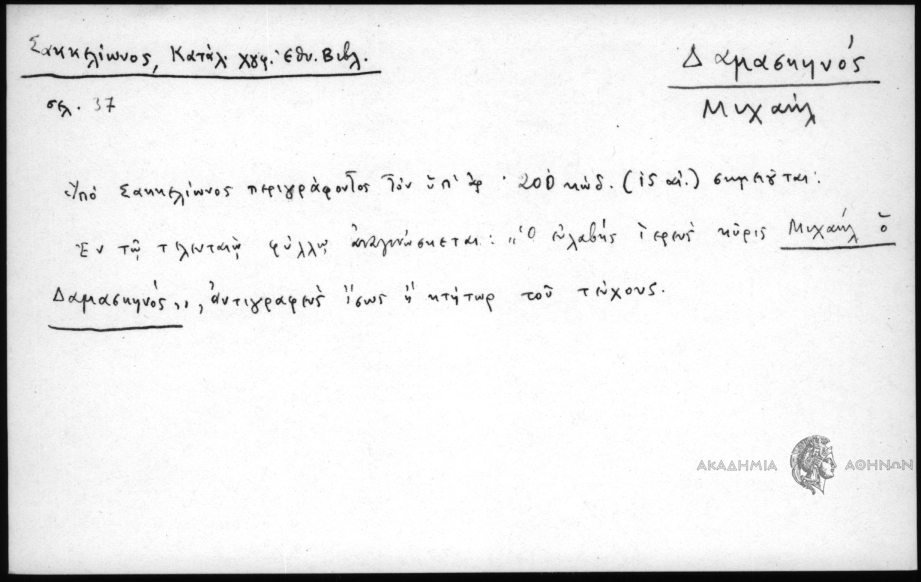 Σακκελίωνος, Κατάλ. χγφ. Ἐθν. Βιβλ.
Δαμασκηνός
σελ. 37
Μιχαήλ
Ὑπό Σακκελίωνος περιγράφοντος τόν ὑπ' ἀρ. 200 κώδ. (ις αἰ.) σημειοῦται:
Ἐν τῷ τελευταίῳ φύλλῳ ἀναγινώσκεται: „Ὁ εὐλαβής ἱερεύς κῦρις Μιχαήλ ὁ
Δαμασκηνός„, ἀντιγραφεύς ἴσως ἤ κτήτωρ τοῦ τεύχους.
ΑΚΑΔΗΜΙΑ ΑΘΗΝΩΝ